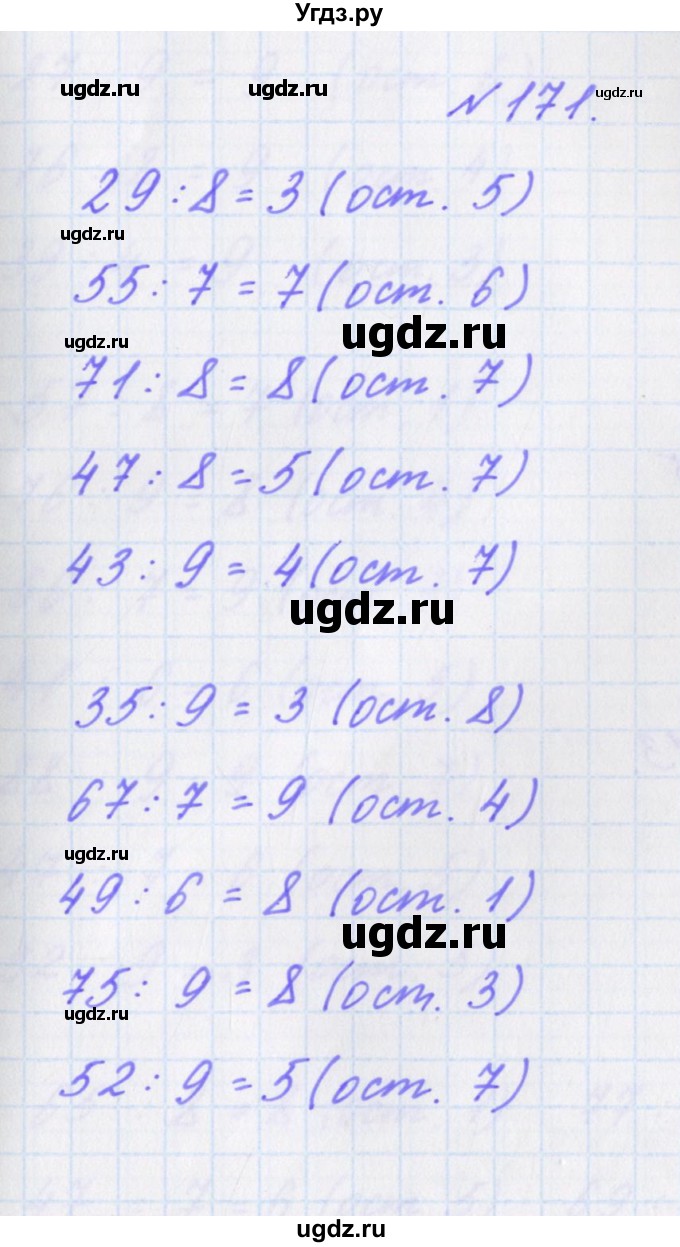 Угдз.ру
ugdz.ru ugdz.ru ugdz.ru
№ 171.
29 : 8 = 3 (ост. 5)
ugdz.ru
55 : 7 = 7 (ост. 6)
ugdz.ru ugdz.ru
71 : 8 = 8 (ост. 7)
47 : 8 = 5 (ост. 7)
43 : 9 = 4 (ост. 7)
ugdz.ru
35 : 9 = 3 (ост. 8)
67 : 7 = 9 (ост. 4)
ugdz.ru
49 : 6 = 8 (ост. 1)
ugdz.ru
75 : 9 = 8 (ост. 3)
ugdz.ru
52 : 9 = 5 (ост. 7)
ugdz.ru